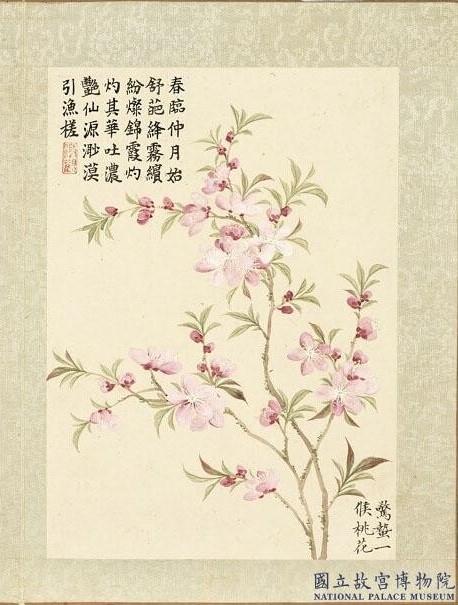 春臨仲月始
舒葩絳霧繽
紛燦錦霞灼
灼其華吐濃
艷仙源渺漠
引漁槎
驚蟄一
候桃花
國立故宮博物院
NATIONAL PALACE MUSEUM